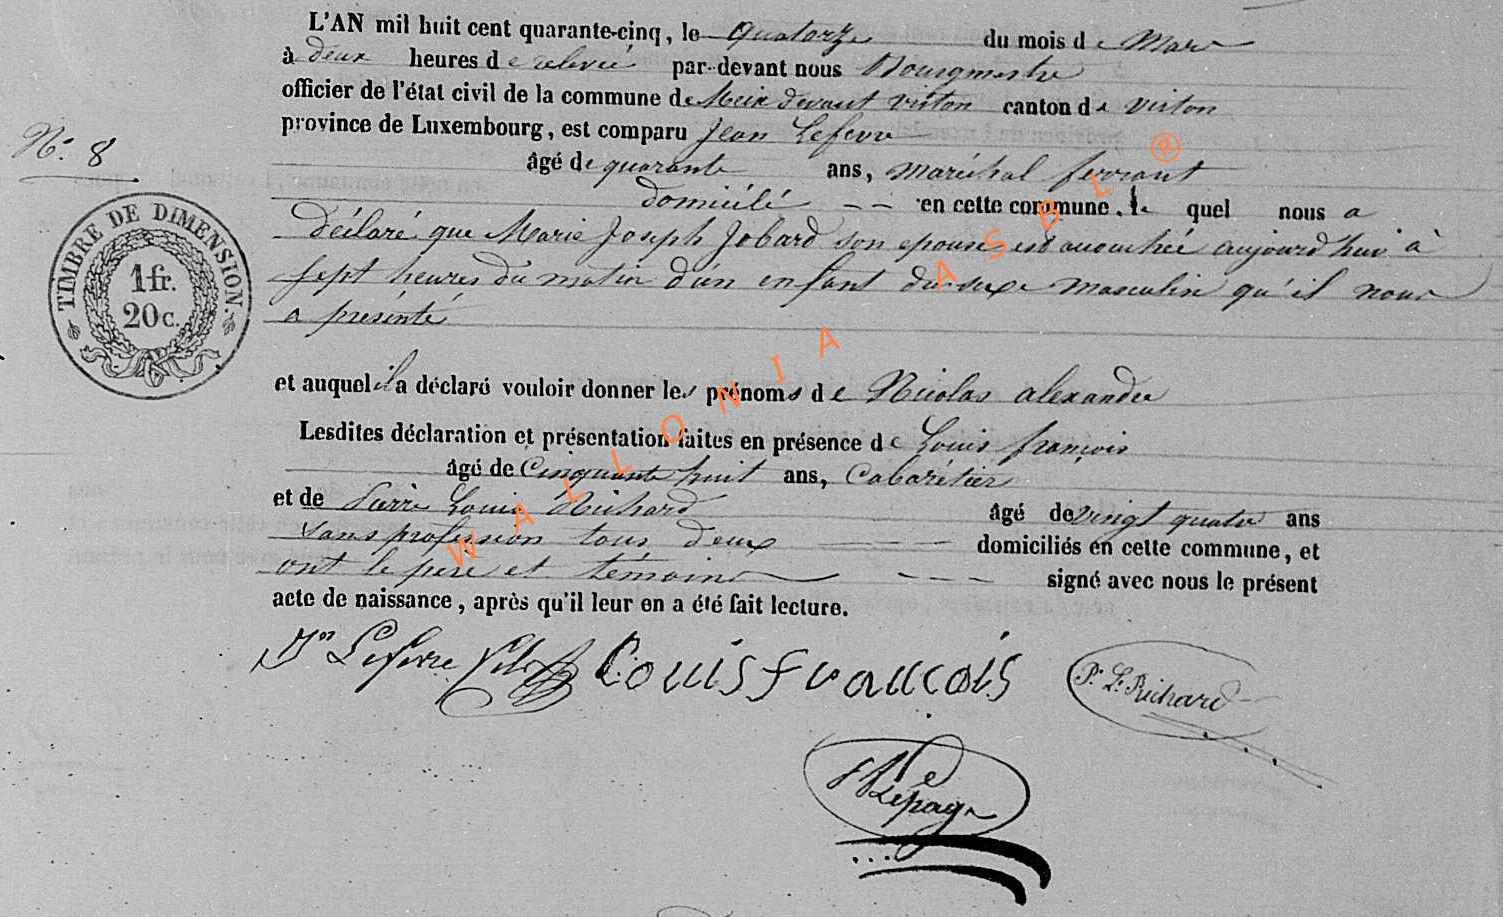 L'AN mil huit cent quarante-cinq, le quatorze du mois de Mars
à deux heures de relevée par-devant nous Bourgmestre
officier de l'état civil de la commune de Meix devant virton canton de virton
province de Luxembourg, est comparu Jean Lefevre
N.° 8
âgé de quarante ans, maréchal ferrant
domicilié en cette commune, le quel nous a
déclaré que Marie Joseph Jobard son epouse est accouchée aujourd'hui à
sept heures du matin d'un enfant du sexe masculin qu'il nous
a présenté
TIMBRE DE DIMENSION.
1 fr.
20 c.
et auquel il a déclaré vouloir donner les prénoms de Nicolas alexandre
Lesdites déclaration et présentation faites en présence de Louis françois
âgé de Cinquante huit ans, Cabarétier
et de Pierre Louis Richard âgé de vingt quatre ans
sans profession tous deux domiciliés en cette commune, et
ont le père et témoins signé avec nous le présent
acte de naissance, après qu'il leur en a été fait lecture.
Jn Lefevre Louis françois P. L. Richard
Lepage
WALLONIA ASBL ®